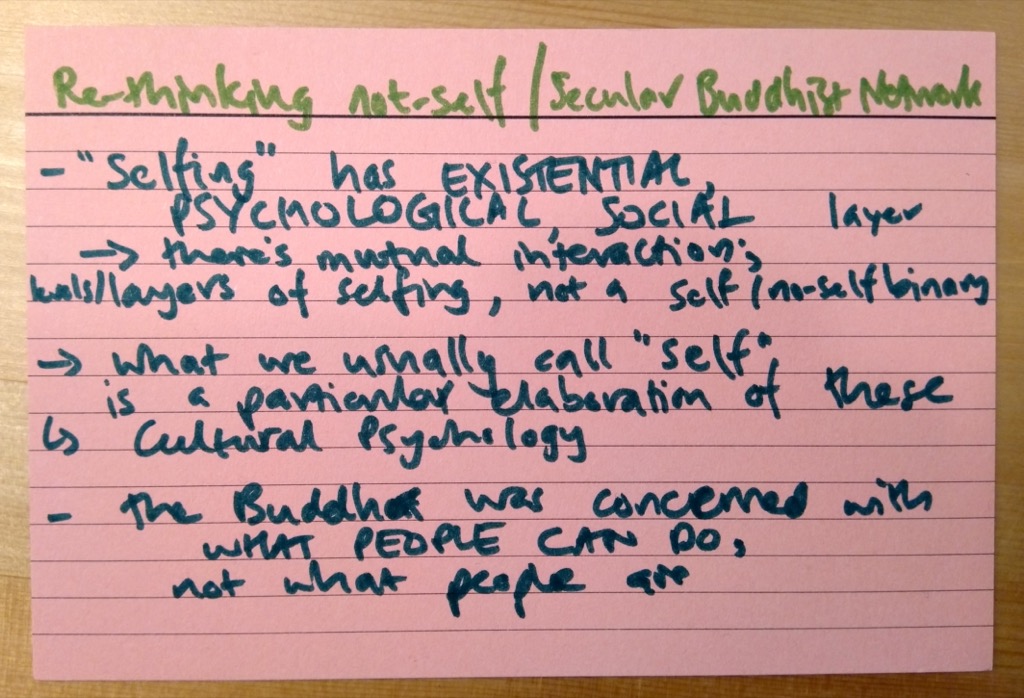 Re-thinking not-self / Secular Buddhist Network
- "Selfing" has EXISTENTIAL,
PSYCHOLOGICAL, SOCIAL layer
→ there's mutual interaction;
levels/layers of selfing, not a self/no-self binary
→ what we usually call "self",
is a particular elaboration of these
↳ Cultural Psychology
- the Buddha was concerned with
WHAT PEOPLE CAN DO,
not what people are